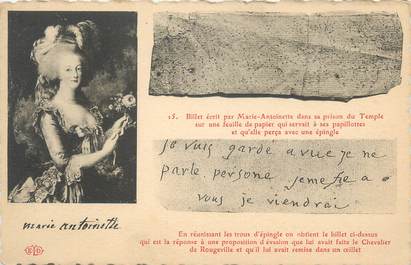 15. Billet écrit par Marie-Antoinette dans sa prison du Temple
sur une feuille de papier qui servait à ses papillottes
et qu'elle perça avec une épingle
je suis gardé a vue je ne
parle persone jemefie a
vous je viendrai
marie antoinette
ED
En réunissant les trous d'épingle on obtient le billet ci-dessus
qui est la réponse à une proposition d'évasion que lui avait faite le Chevalier
de Rougeville et qu'il lui avait remise dans un œillet